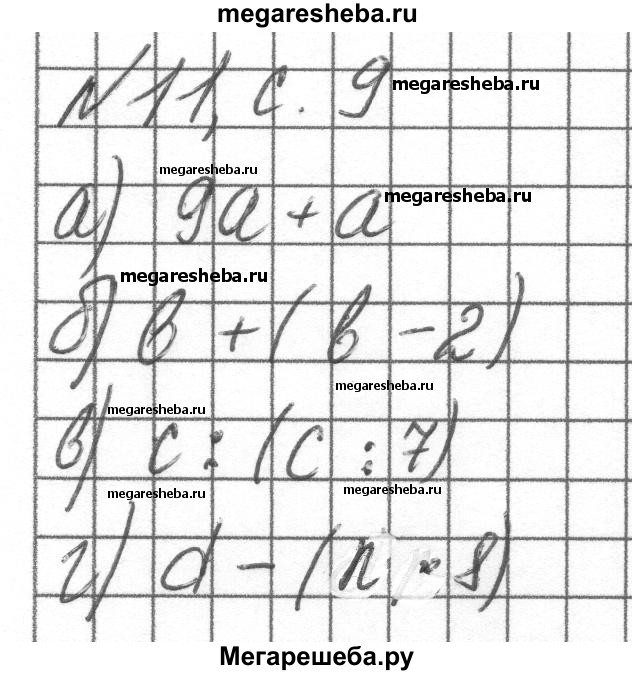 megaresheba.ru
№ 11, с. 9 megaresheba.ru
megaresheba.ru
а) 9a + a megaresheba.ru
megaresheba.ru
б) b + (b - 2)
megaresheba.ru
megaresheba.ru
в) c : (c : 7)
megaresheba.ru megaresheba.ru
г) d - (n · 8)
Мегарешеба.ру